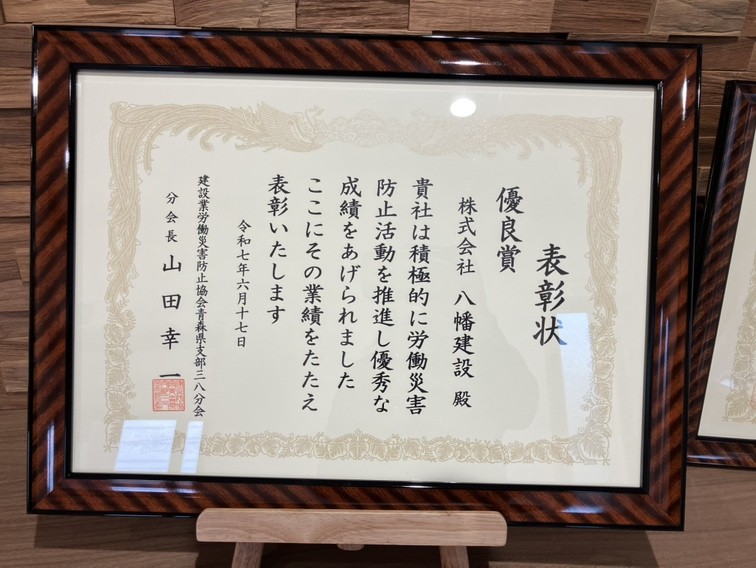 表彰状
優良賞
株式会社 八幡建設 殿
貴社は積極的に労働災害
防止活動を推進し優秀な
成績をあげられました
ここにその業績をたたえ
表彰いたします
令和七年六月十七日
建設業労働災害防止協会青森県支部三八分会
分会長 山田幸一